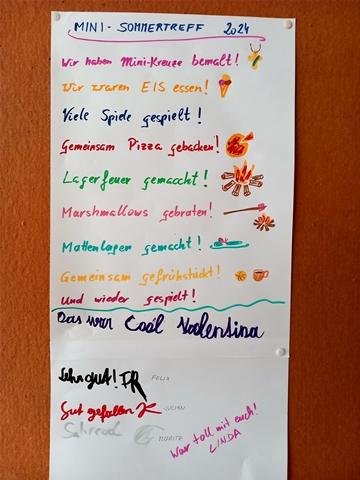 MINI - SOMMERTREFF 2024
Wir haben Mini-Kreuze bemalt!
Wir waren EIS essen!
Viele Spiele gespielt!
Gemeinsam Pizza gebacken!
Lagerfeuer gemacht!
Marshmallows gebraten!
Mattenlager gemacht!
Gemeinsam gefrühstückt!
Und wieder gespielt!
Das war Cool Valentina
Sehr gut! FR FELIX
Gut gefallen JULIAN
MORITZ
War toll mit euch!
LINDA